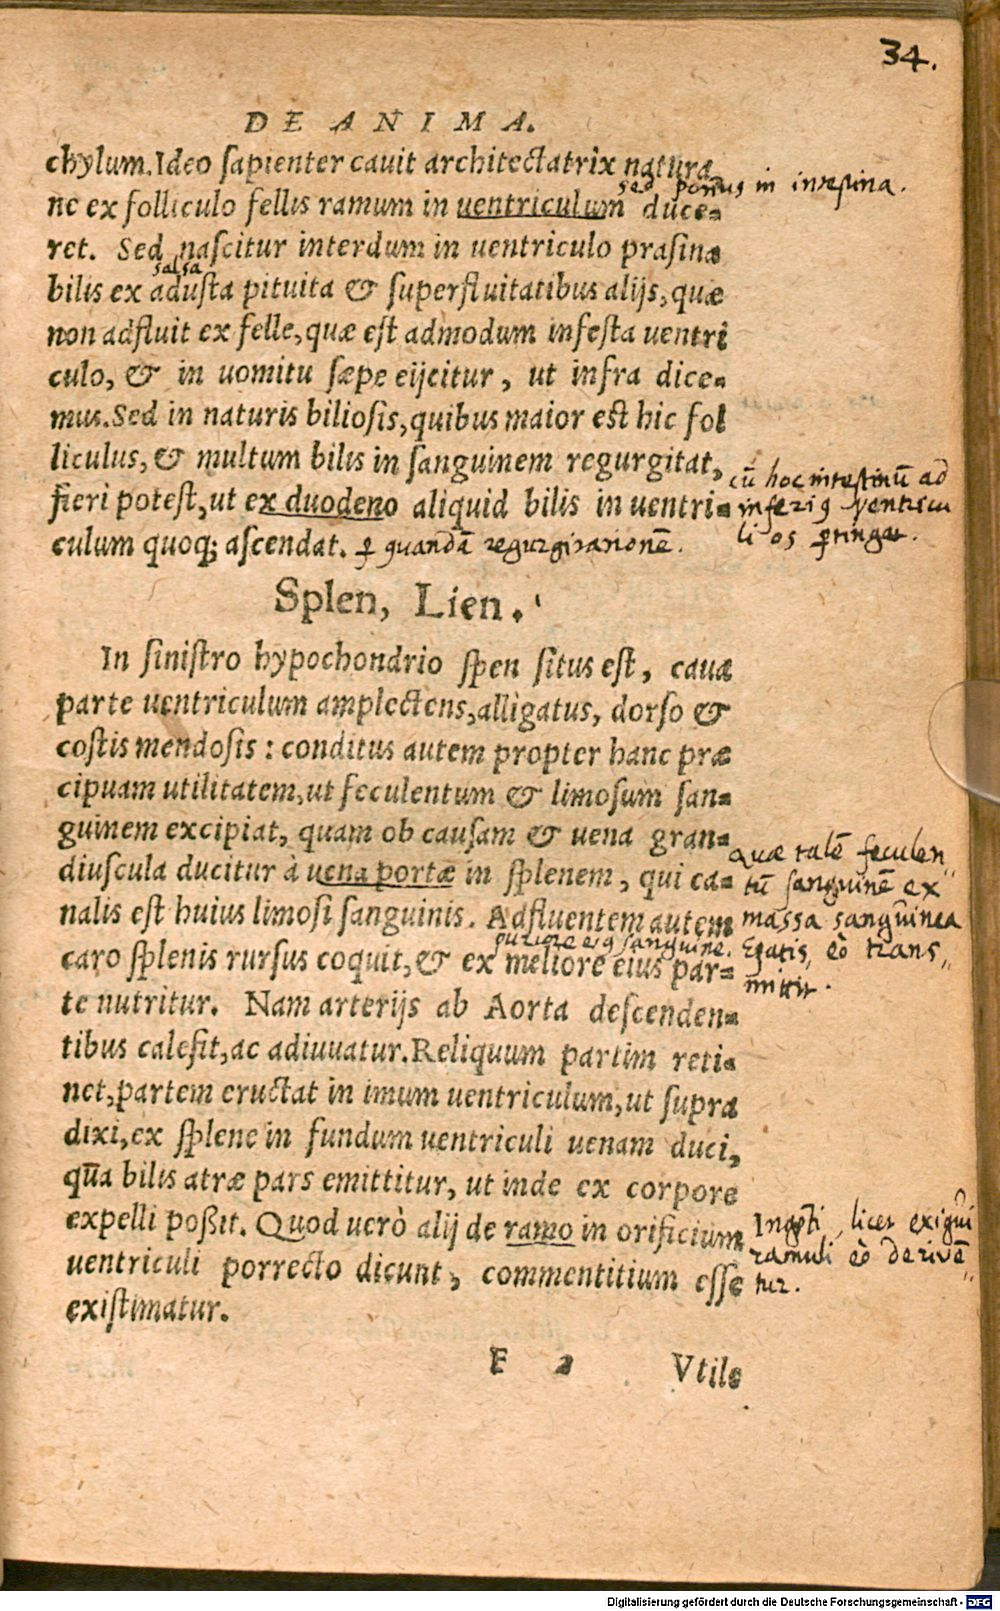 34.
DE ANIMA.
chylum. Ideo sapienter cauit architectatrix natura
sed potius in intestina.
ne ex folliculo fellis ramum in uentriculum duce=
ret. Sed nascitur interdum in uentriculo prasina
salsa
bilis ex adusta pituita & superfluitatibus alijs, quæ
non adfluit ex felle, quæ est admodum infesta uentri
culo, & in uomitu sæpe eijcitur, ut infra dice=
mus. Sed in naturis biliosis, quibus maior est hic fol
liculus, & multum bilis in sanguinem regurgitat,
fieri potest, ut ex duodeno aliquid bilis in uentri=
culum quoq; ascendat. ꝑ quandā regurgitationē.
cū hoc intestinū ad
inferiꝰ ventricu
li os ꝑtingat.
Splen, Lien.
In sinistro hypochondrio spen situs est, caua
parte uentriculum amplectens, alligatus, dorso &
costis mendosis: conditus autem propter hanc præ
cipuam utilitatem, ut feculentum & limosum san=
guinem excipiat, quam ob causam & uena gran=
diuscula ducitur à uena portæ in splenem, qui ca=
nalis est huius limosi sanguinis. Adfluentem autem
quæ talē feculen
tū sanguinē ex
massa sanguinea
Epatis, eò trans,,
mittit.
puriore eiꝰ sanguine.
caro splenis rursus coquit, & ex meliore eius par=
te nutritur. Nam arterijs ab Aorta descenden=
tibus calefit, ac adiuuatur. Reliquum partim reti=
net, partem eructat in imum uentriculum, ut supra
dixi, ex splene in fundum uentriculi uenam duci,
qua bilis atræ pars emittitur, ut inde ex corpore
expelli poßit. Quod uerò alij de ramo in orificium
uentriculi porrecto dicunt, commentitium esse
existimatur.
Inepti, licet exigui
ramuli eò derivē,,
tur.
F 2 Vtile
Digitalisierung gefördert durch die Deutsche Forschungsgemeinschaft - DFG